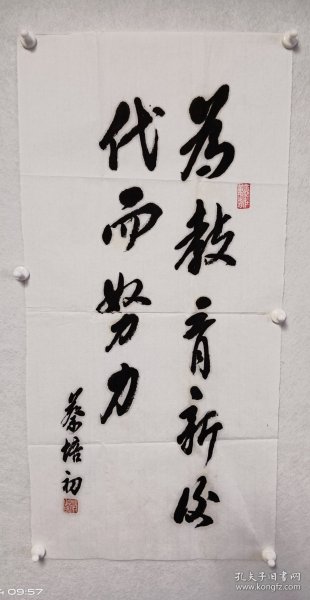 为教育新后
代而努力
蔡培初
09:57
孔夫子旧书网
kongfz.com